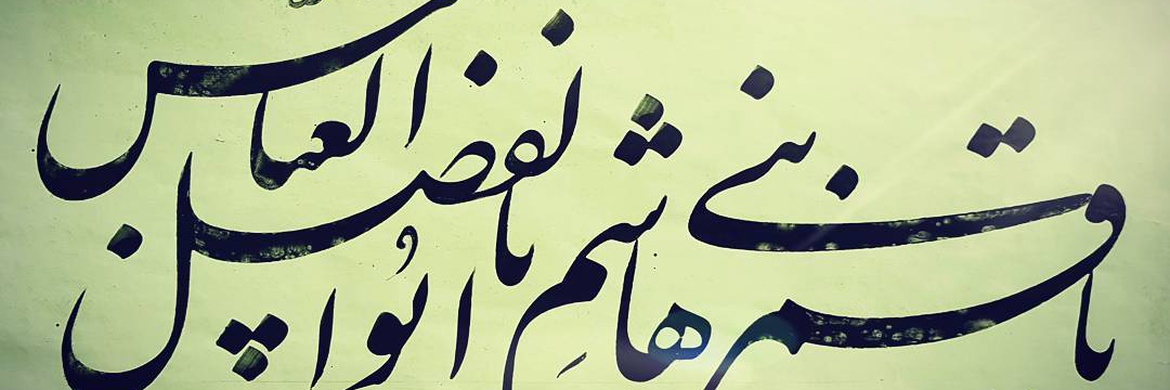 یا قمر بنی هاشم
یا ابوالفضل العباس